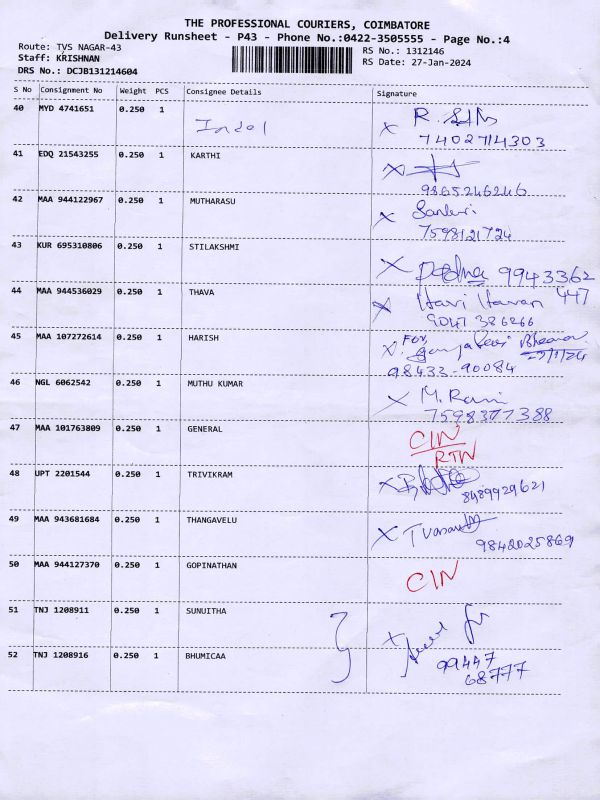 THE PROFESSIONAL COURIERS, COIMBATORE
Delivery Runsheet - P43 - Phone No.:0422-3505555 - Page No.:4
Route: TVS NAGAR-43 RS No.: 1312146
Staff: KRISHNAN RS Date: 27-Jan-2024
DRS No.: DCJB131214604
S No Consignment No Weight PCS Consignee Details Signature
40 MYD 4741651 0.250 1 Indol X R.
7402714303
41 EDQ 21543255 0.250 1 KARTHI X
9865246246
42 MAA 944122967 0.250 1 MUTHARASU X
7598121724
43 KUR 695310806 0.250 1 STILAKSHMI X 9943362
447
44 MAA 944536029 0.250 1 THAVA X Hari Haran
9047 386266
45 MAA 107272614 0.250 1 HARISH X. For
98433-90084
46 NGL 6062542 0.250 1 MUTHU KUMAR X M. Rani
7598377388
47 MAA 101763809 0.250 1 GENERAL CIN
RTN
48 UPT 2201544 0.250 1 TRIVIKRAM X
8489929621
49 MAA 943681684 0.250 1 THANGAVELU X
9842025869
50 MAA 944127370 0.250 1 GOPINATHAN CIN
51 TNJ 1208911 0.250 1 SUNUITHA X
52 TNJ 1208916 0.250 1 BHUMICAA 99447
68777